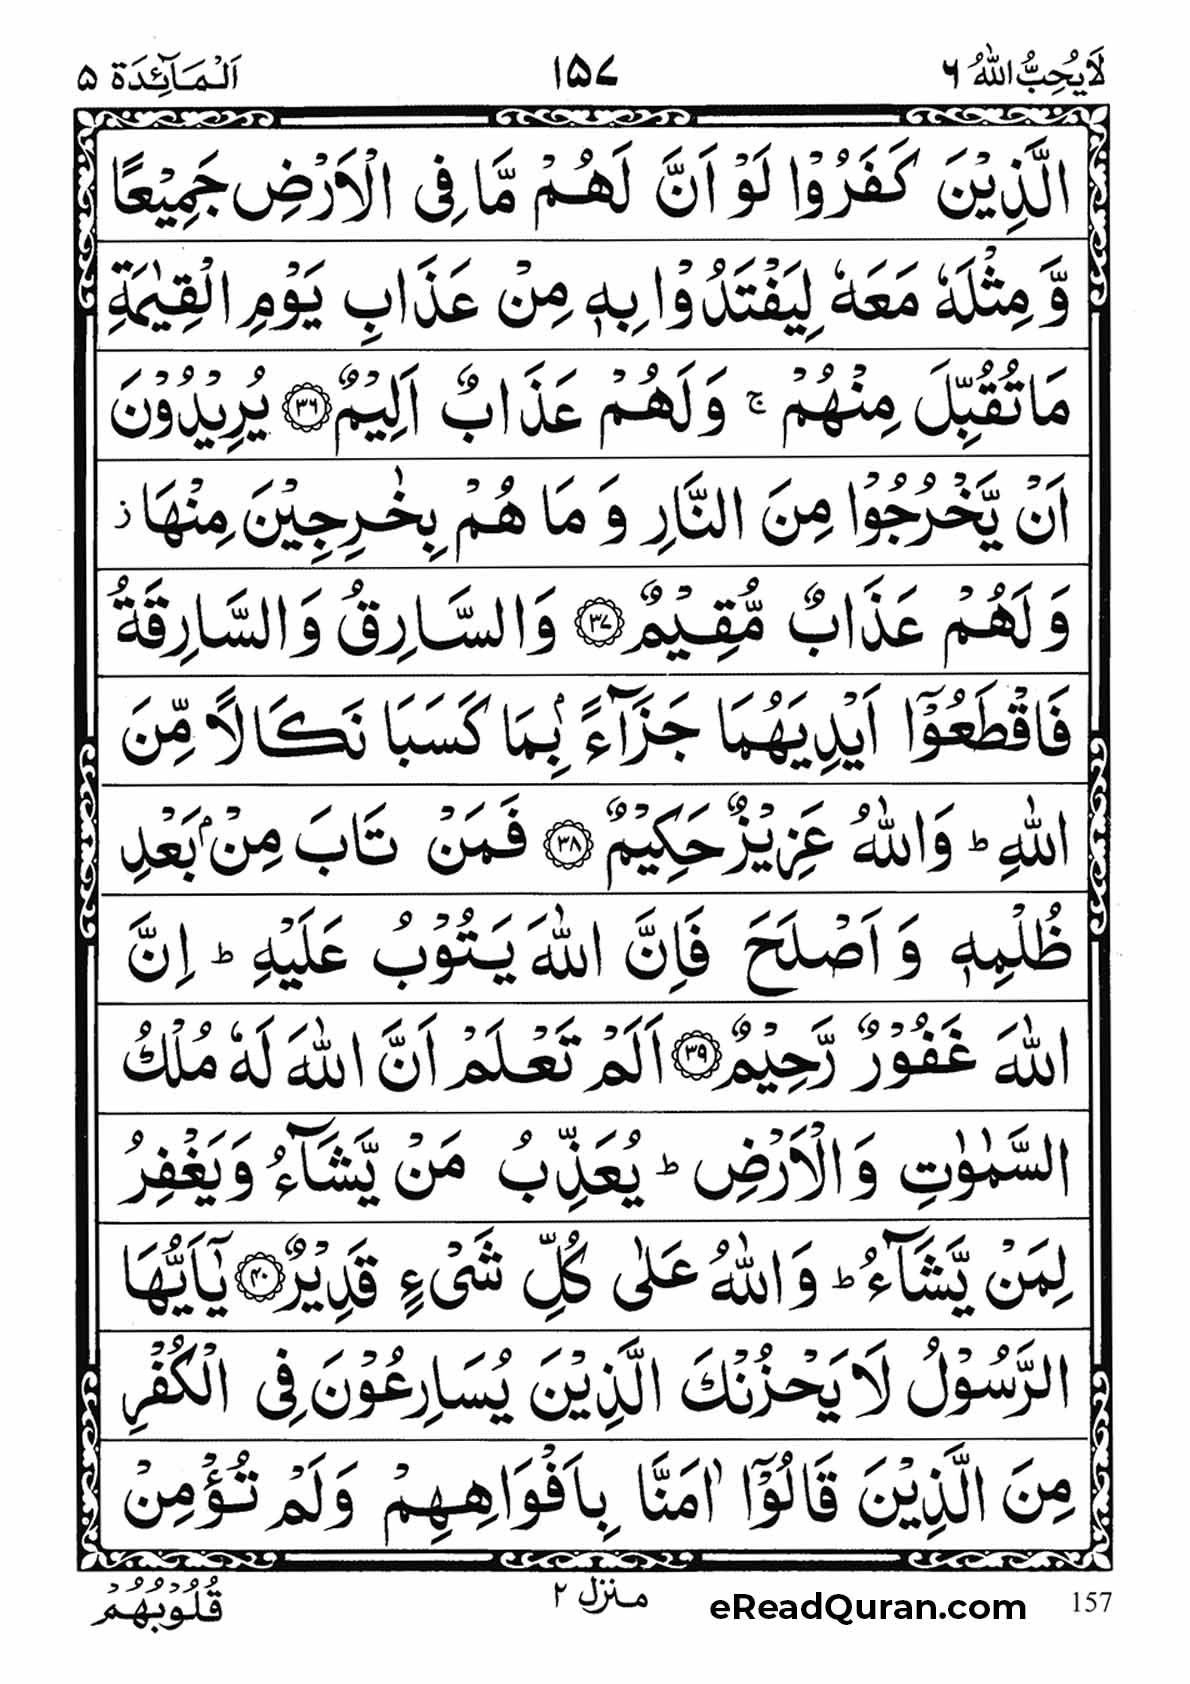 لَا يُحِبُّ اللّٰهُ ٦
١٥٧
اَلْمَآئِدَة ٥
الَّذِيْنَ كَفَرُوْا لَوْ اَنَّ لَهُمْ مَّا فِى الْاَرْضِ جَمِيْعًا
وَّ مِثْلَهٗ مَعَهٗ لِيَفْتَدُوْا بِهٖ مِنْ عَذَابِ يَوْمِ الْقِيٰمَةِ
مَا تُقُبِّلَ مِنْهُمْ ۚ وَلَهُمْ عَذَابٌ اَلِيْمٌ ﴿٣٦﴾ يُرِيْدُوْنَ
اَنْ يَّخْرُجُوْا مِنَ النَّارِ وَ مَا هُمْ بِخٰرِجِيْنَ مِنْهَا ز
وَ لَهُمْ عَذَابٌ مُّقِيْمٌ ﴿٣٧﴾ وَالسَّارِقُ وَالسَّارِقَةُ
فَاقْطَعُوْٓا اَيْدِيَهُمَا جَزَآءًۢ بِمَا كَسَبَا نَكَالًا مِّنَ
اللّٰهِ ؕ وَاللّٰهُ عَزِيْزٌ حَكِيْمٌ ﴿٣٨﴾ فَمَنْ تَابَ مِنْۢ بَعْدِ
ظُلْمِهٖ وَ اَصْلَحَ فَاِنَّ اللّٰهَ يَتُوْبُ عَلَيْهِ ؕ اِنَّ
اللّٰهَ غَفُوْرٌ رَّحِيْمٌ ﴿٣٩﴾ اَلَمْ تَعْلَمْ اَنَّ اللّٰهَ لَهٗ مُلْكُ
السَّمٰوٰتِ وَ الْاَرْضِ ؕ يُعَذِّبُ مَنْ يَّشَآءُ وَيَغْفِرُ
لِمَنْ يَّشَآءُ ؕ وَاللّٰهُ عَلٰى كُلِّ شَىْءٍ قَدِيْرٌ ﴿٤٠﴾ يٰٓاَيُّهَا
الرَّسُوْلُ لَا يَحْزُنْكَ الَّذِيْنَ يُسَارِعُوْنَ فِى الْكُفْرِ
مِنَ الَّذِيْنَ قَالُوْٓا اٰمَنَّا بِاَفْوَاهِهِمْ وَلَمْ تُؤْمِنْ
قُلُوْبُهُمْ
منزل ٢
eReadQuran.com
157